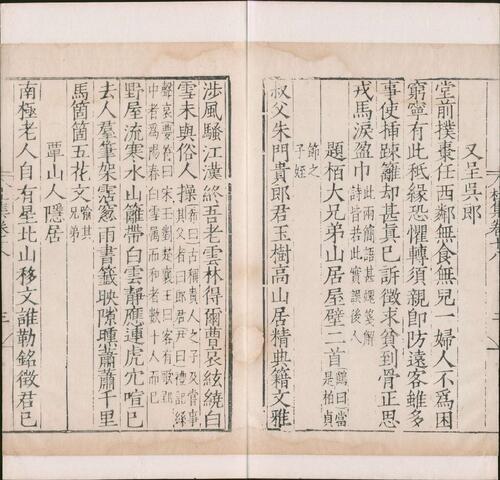 又呈吳郎
堂前撲棗任西鄰無食無兒一婦人不爲困
窮寧有此秪緣恐懼轉須親即防遠客雖多
事使插踈籬却甚眞已訴徵求貧到骨正思
戎馬淚盈巾此兩簡語甚詩皆若此實誤後人
題栢大兄弟山居屋壁二首鶴曰當是柏貞節之子姪
叔父朱門貴郎君玉樹高山居精典籍文雅
涉風騷江漢終吾老雲林得爾曹哀絃繞白
雪未與俗人操
野屋流寒水山籬帶白雲靜應連虎穴喧已
去人羣筆架霑窻雨書籤映隙曛蕭蕭千里
馬箇箇五花文喻其兄弟
覃山人隱居
南極老人自有星北山移文誰勒銘徵君已